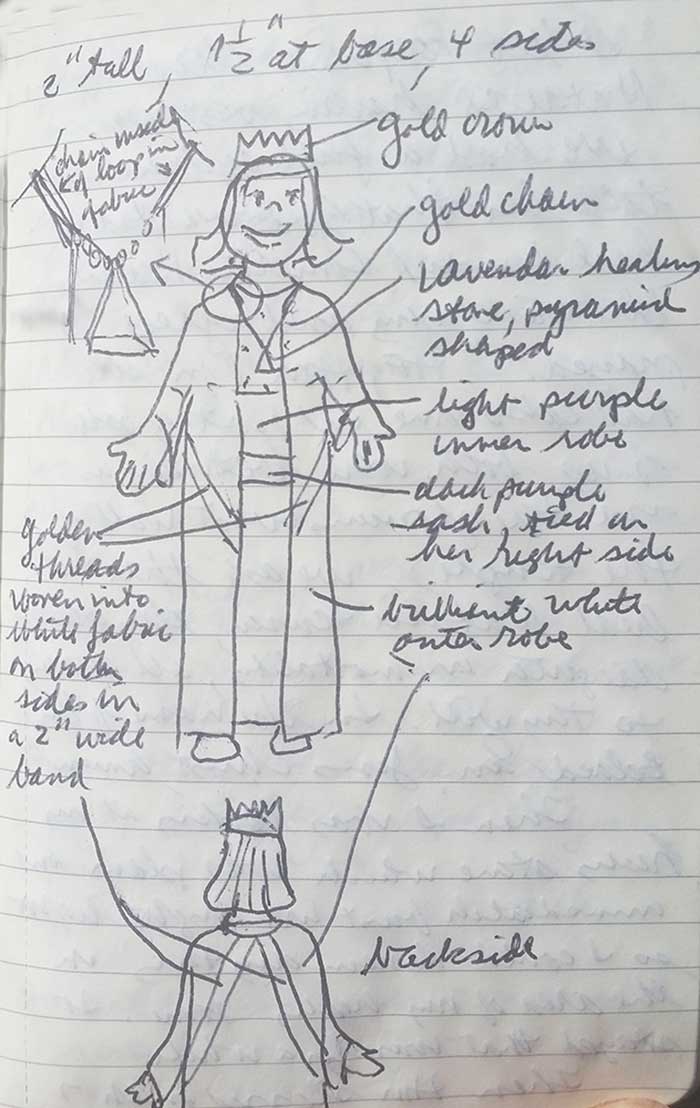 2" tall, 1 1/2" at base, 4 sides
chain inside
of loop in
fabric
gold crown
gold chain
lavendar healing
stone, pyramid
shaped
light purple
inner robe
dark purple
sash, tied on
her right side
golden
threads
woven into
white fabric
on both
sides in
a 2" wide
band
brilliant white
outer robe
backside